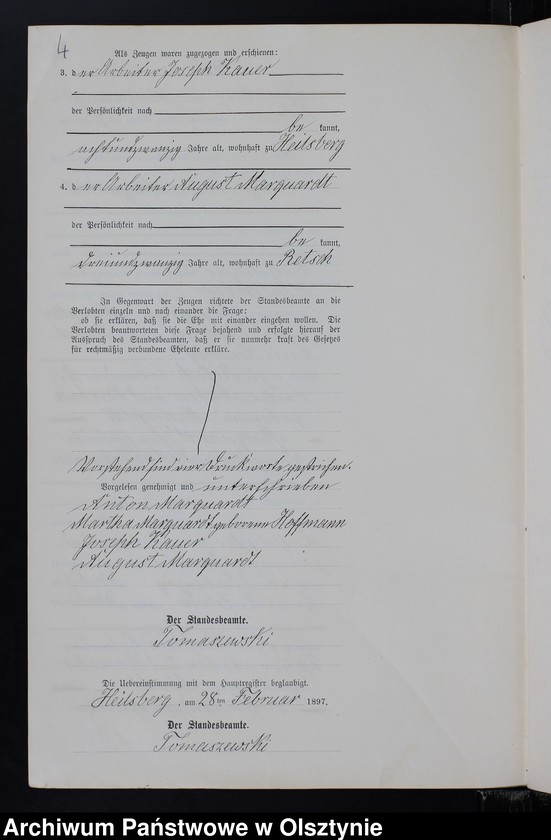 4
Als Zeugen waren zugezogen und erschienen:
3. der Arbeiter Joseph Kauer
der Persönlichkeit nach
be kannt,
achtundzwanzig Jahre alt, wohnhaft zu Heilsberg
4. der Arbeiter August Marquardt
der Persönlichkeit nach
be kannt,
dreiundzwanzig Jahre alt, wohnhaft zu Retsch
In Gegenwart der Zeugen richtete der Standesbeamte an die
Verlobten einzeln und nach einander die Frage:
ob sie erklären, daß sie die Ehe mit einander eingehen wollen. Die
Verlobten beantworteten diese Frage bejahend und erfolgte hierauf der
Ausspruch des Standesbeamten, daß er sie nunmehr kraft des Gesetzes
für rechtmäßig verbundene Eheleute erkläre.
Vorstehend sind vier Druckworte gestrichen.
Vorgelesen genehmigt und unterschrieben
Anton Marquardt
Martha Marquardt geborene Hoffmann
Joseph Kauer
August Marquardt
Der Standesbeamte.
Tomaszewski
Die Uebereinstimmung mit dem Hauptregister beglaubigt.
Heilsberg, am 28ten Februar 1897.
Der Standesbeamte.
Tomaszewski
Archiwum Państwowe w Olsztynie